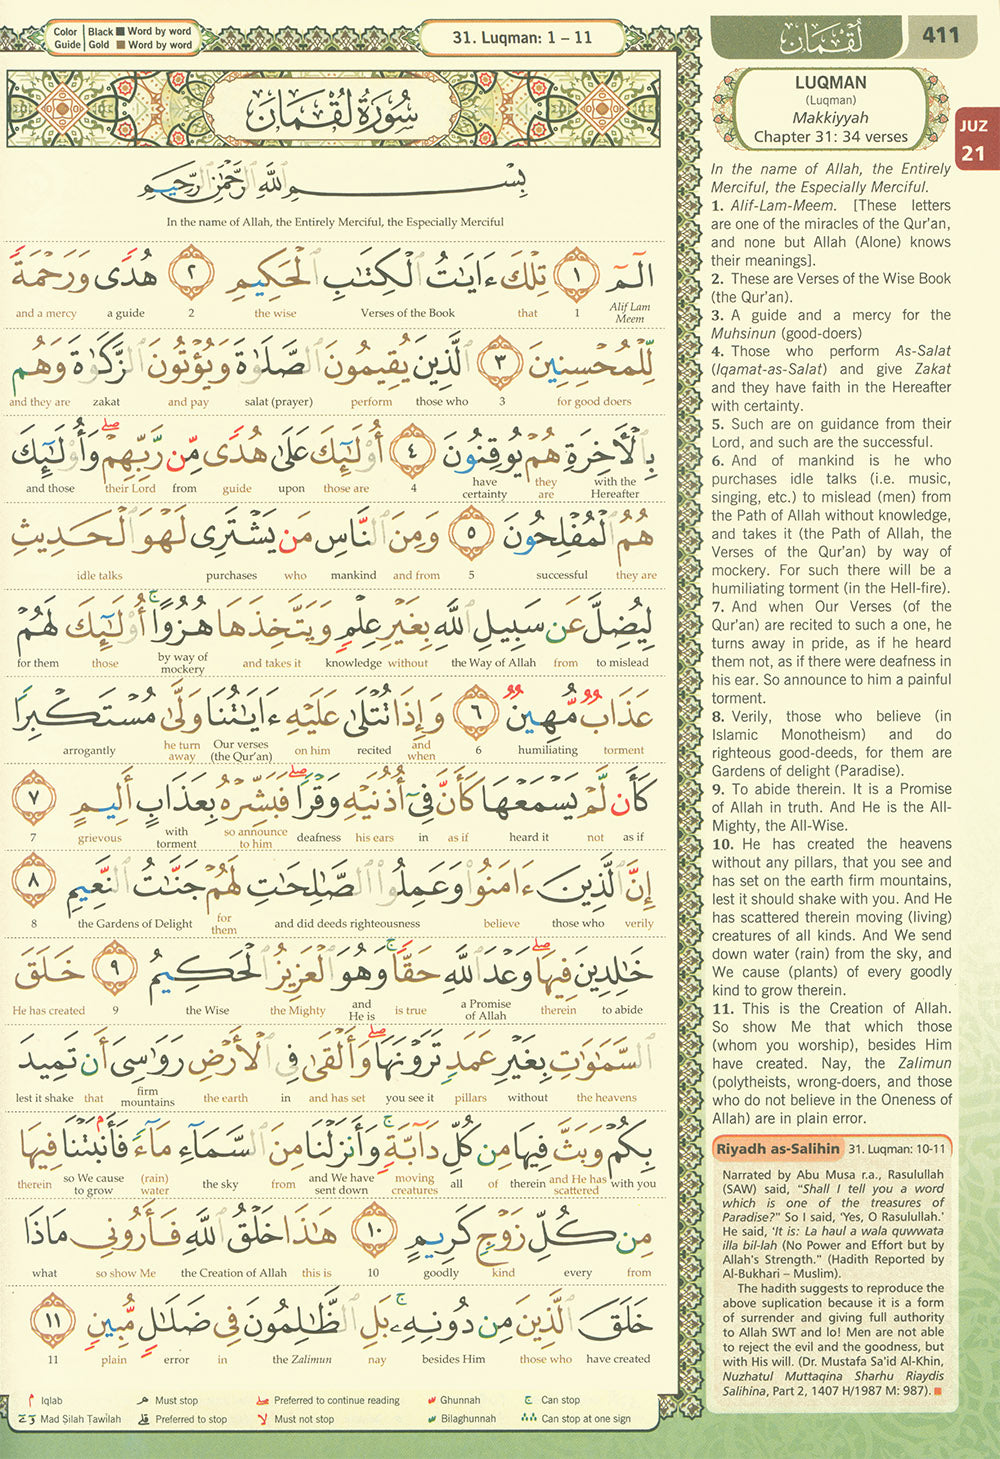 Color Guide | Black ■ Word by word
Gold ■ Word by word
31. Luqman: 1 – 11
سُورَةُ لُقْمَانَ
بِسْمِ اللَّهِ الرَّحْمَٰنِ الرَّحِيمِ
In the name of Allah, the Entirely Merciful, the Especially Merciful
الٓمٓ ١ تِلْكَ ءَايَٰتُ الْكِتَٰبِ الْحَكِيمِ ٢ هُدًى وَرَحْمَةً
and a mercy a guide 2 the wise Verses of the Book that 1 Alif Lam Meem
لِّلْمُحْسِنِينَ ٣ الَّذِينَ يُقِيمُونَ الصَّلَوٰةَ وَيُؤْتُونَ الزَّكَوٰةَ وَهُم
and they are zakat and pay salat (prayer) perform those who 3 for good doers
بِالْأَخِرَةِ هُمْ يُوقِنُونَ ٤ أُو۟لَٰٓئِكَ عَلَىٰ هُدًى مِّن رَّبِّهِمْ ۖ وَأُو۟لَٰٓئِكَ
and those their Lord from guide upon those are 4 have certainty they are with the Hereafter
هُمُ الْمُفْلِحُونَ ٥ وَمِنَ النَّاسِ مَن يَشْتَرِى لَهْوَ الْحَدِيثِ
idle talks purchases who mankind and from 5 successful they are
لِيُضِلَّ عَن سَبِيلِ اللَّهِ بِغَيْرِ عِلْمٍ وَيَتَّخِذَهَا هُزُوًا ۚ أُو۟لَٰٓئِكَ لَهُمْ
for them those by way of mockery and takes it knowledge without the Way of Allah from to mislead
عَذَابٌ مُّهِينٌ ٦ وَإِذَا تُتْلَىٰ عَلَيْهِ ءَايَٰتُنَا وَلَّىٰ مُسْتَكْبِرًا
arrogantly he turn away Our verses (the Qur'an) on him recited and when 6 humiliating torment
كَأَن لَّمْ يَسْمَعْهَا كَأَنَّ فِىٓ أُذُنَيْهِ وَقْرًا ۖ فَبَشِّرْهُ بِعَذَابٍ أَلِيمٍ ٧
7 grievous with torment so announce to him deafness his ears in as if heard it not as if
إِنَّ الَّذِينَ ءَامَنُوا۟ وَعَمِلُوا۟ الصَّٰلِحَٰتِ لَهُمْ جَنَّٰتُ النَّعِيمِ ٨
8 the Gardens of Delight for them and did deeds righteousness believe those who verily
خَٰلِدِينَ فِيهَا ۖ وَعْدَ اللَّهِ حَقًّا ۚ وَهُوَ الْعَزِيزُ الْحَكِيمُ ٩ خَلَقَ
He has created 9 the Wise the Mighty and He is is true a Promise of Allah therein to abide
السَّمَٰوَٰتِ بِغَيْرِ عَمَدٍ تَرَوْنَهَا ۖ وَأَلْقَىٰ فِى الْأَرْضِ رَوَٰسِىَ أَن تَمِيدَ
lest it shake that firm mountains the earth in and has set you see it pillars without the heavens
بِكُمْ وَبَثَّ فِيهَا مِن كُلِّ دَآبَّةٍ ۚ وَأَنزَلْنَا مِنَ السَّمَآءِ مَآءً فَأَنۢبَتْنَا فِيهَا
therein so We cause to grow (rain) water the sky from and We have sent down moving creatures all of therein and He has scattered with you
مِن كُلِّ زَوْجٍ كَرِيمٍ ١٠ هَٰذَا خَلْقُ اللَّهِ فَأَرُونِى مَاذَا
what so show Me the Creation of Allah this is 10 goodly kind every from
خَلَقَ الَّذِينَ مِن دُونِهِۦ ۚ بَلِ الظَّٰلِمُونَ فِى ضَلَٰلٍ مُّبِينٍ ١١
11 plain error in the Zalimun nay besides Him those who have created
Iqlab Must stop Preferred to continue reading Ghunnah Can stop
Mad Silah Tawilah Preferred to stop Must not stop Bilaghunnah Can stop at one sign
لُقْمَان
411
JUZ
21
LUQMAN
(Luqman)
Makkiyyah
Chapter 31: 34 verses
In the name of Allah, the Entirely
Merciful, the Especially Merciful.
1. Alif-Lam-Meem. [These letters
are one of the miracles of the Qur'an,
and none but Allah (Alone) knows
their meanings].
2. These are Verses of the Wise Book
(the Qur'an).
3. A guide and a mercy for the
Muhsinun (good-doers)
4. Those who perform As-Salat
(Iqamat-as-Salat) and give Zakat
and they have faith in the Hereafter
with certainty.
5. Such are on guidance from their
Lord, and such are the successful.
6. And of mankind is he who
purchases idle talks (i.e. music,
singing, etc.) to mislead (men) from
the Path of Allah without knowledge,
and takes it (the Path of Allah, the
Verses of the Qur'an) by way of
mockery. For such there will be a
humiliating torment (in the Hell-fire).
7. And when Our Verses (of the
Qur'an) are recited to such a one, he
turns away in pride, as if he heard
them not, as if there were deafness in
his ear. So announce to him a painful
torment.
8. Verily, those who believe (in
Islamic Monotheism) and do
righteous good-deeds, for them are
Gardens of delight (Paradise).
9. To abide therein. It is a Promise
of Allah in truth. And He is the All-
Mighty, the All-Wise.
10. He has created the heavens
without any pillars, that you see and
has set on the earth firm mountains,
lest it should shake with you. And He
has scattered therein moving (living)
creatures of all kinds. And We send
down water (rain) from the sky, and
We cause (plants) of every goodly
kind to grow therein.
11. This is the Creation of Allah.
So show Me that which those
(whom you worship), besides Him
have created. Nay, the Zalimun
(polytheists, wrong-doers, and those
who do not believe in the Oneness of
Allah) are in plain error.
Riyadh as-Salihin 31. Luqman: 10-11
Narrated by Abu Musa r.a., Rasulullah
(SAW) said, "Shall I tell you a word
which is one of the treasures of
Paradise?" So I said, 'Yes, O Rasulullah.'
He said, 'It is: La haul a wala quwwata
illa bil-lah (No Power and Effort but by
Allah's Strength." (Hadith Reported by
Al-Bukhari – Muslim).
The hadith suggests to reproduce the
above suplication because it is a form
of surrender and giving full authority
to Allah SWT and lo! Men are not able
to reject the evil and the goodness, but
with His will. (Dr. Mustafa Sa'id Al-Khin,
Nuzhatul Muttaqina Sharhu Riaydis
Salihina, Part 2, 1407 H/1987 M: 987).